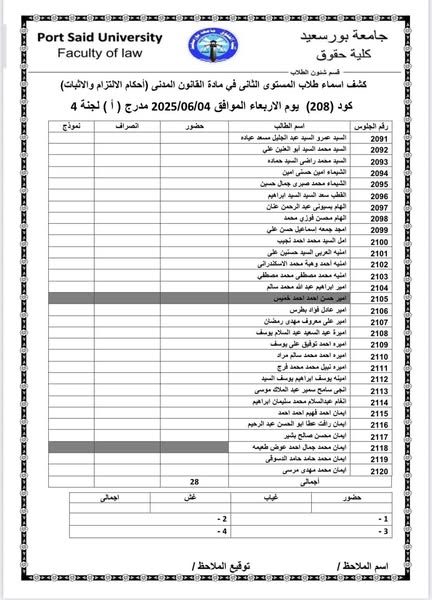 جامعة بورسعيد
كلية حقوق
Port Said University
Faculty of law
قسم شئون الطلاب
كشف اسماء طلاب المستوى الثانى في مادة القانون المدنى (أحكام الالتزام والاثبات)
كود (208) يوم الاربعاء الموافق 2025/06/04 مدرج ( أ ) لجنة 4
رقم الجلوس اسم الطالب حضور انصراف نموذج
2091 السيد عمرو السيد عبد الجليل مسعد عياده
2092 السيد محمد السيد أبو العنين علي
2093 السيد محمد راضى السيد حماده
2094 الشيماء امين حسنى امين
2095 الشيماء محمد صبرى جمال حسين
2096 القطب سعد السيد السيد ابراهيم
2097 الهام بسيونى عبد الرحمن عنان
2098 الهام محسن فوزي محمد
2099 امجد جمعه إسماعيل حسن علي
2100 امل السيد محمد احمد نجيب
2101 امنيه العربى السيد حسنين على
2102 امنيه أحمد وهبة محمد الاسكندرانى
2103 امنيه محمد مصطفى محمد مصطفي
2104 امير ابراهيم عبد الله محمد سالم
2105 امير حسن احمد احمد خميس
2106 امير عادل فؤاد بطرس
2107 امير على معروف مهدى رمضان
2108 اميرة عبد السعيد عبد السلام يوسف
2109 اميره احمد توفيق على يوسف
2110 اميره احمد محمد سالم مراد
2111 اميره نبيل محمد محمد فرج
2112 امينه يوسف ابراهيم يوسف السيد
2113 انجى سامح سمير عبد الملاك موسى
2114 انغام عبدالسلام محمد سليمان ابراهيم
2115 ايمان احمد فهيم احمد احمد
2116 ايمان رافت عطا ابو الحسن عبد الرحيم
2117 ايمان محسن صالح بشير
2118 ايمان محمد جمال احمد عوض طعيمه
2119 ايمان محمد حامد حامد الدسوقى
2120 ايمان محمد مهدى مرسى
أجمالى 28
حضور غياب غش اجمالى
1 - 2 -
3 - 4 -
اسم الملاحظ / توقيع الملاحظ /